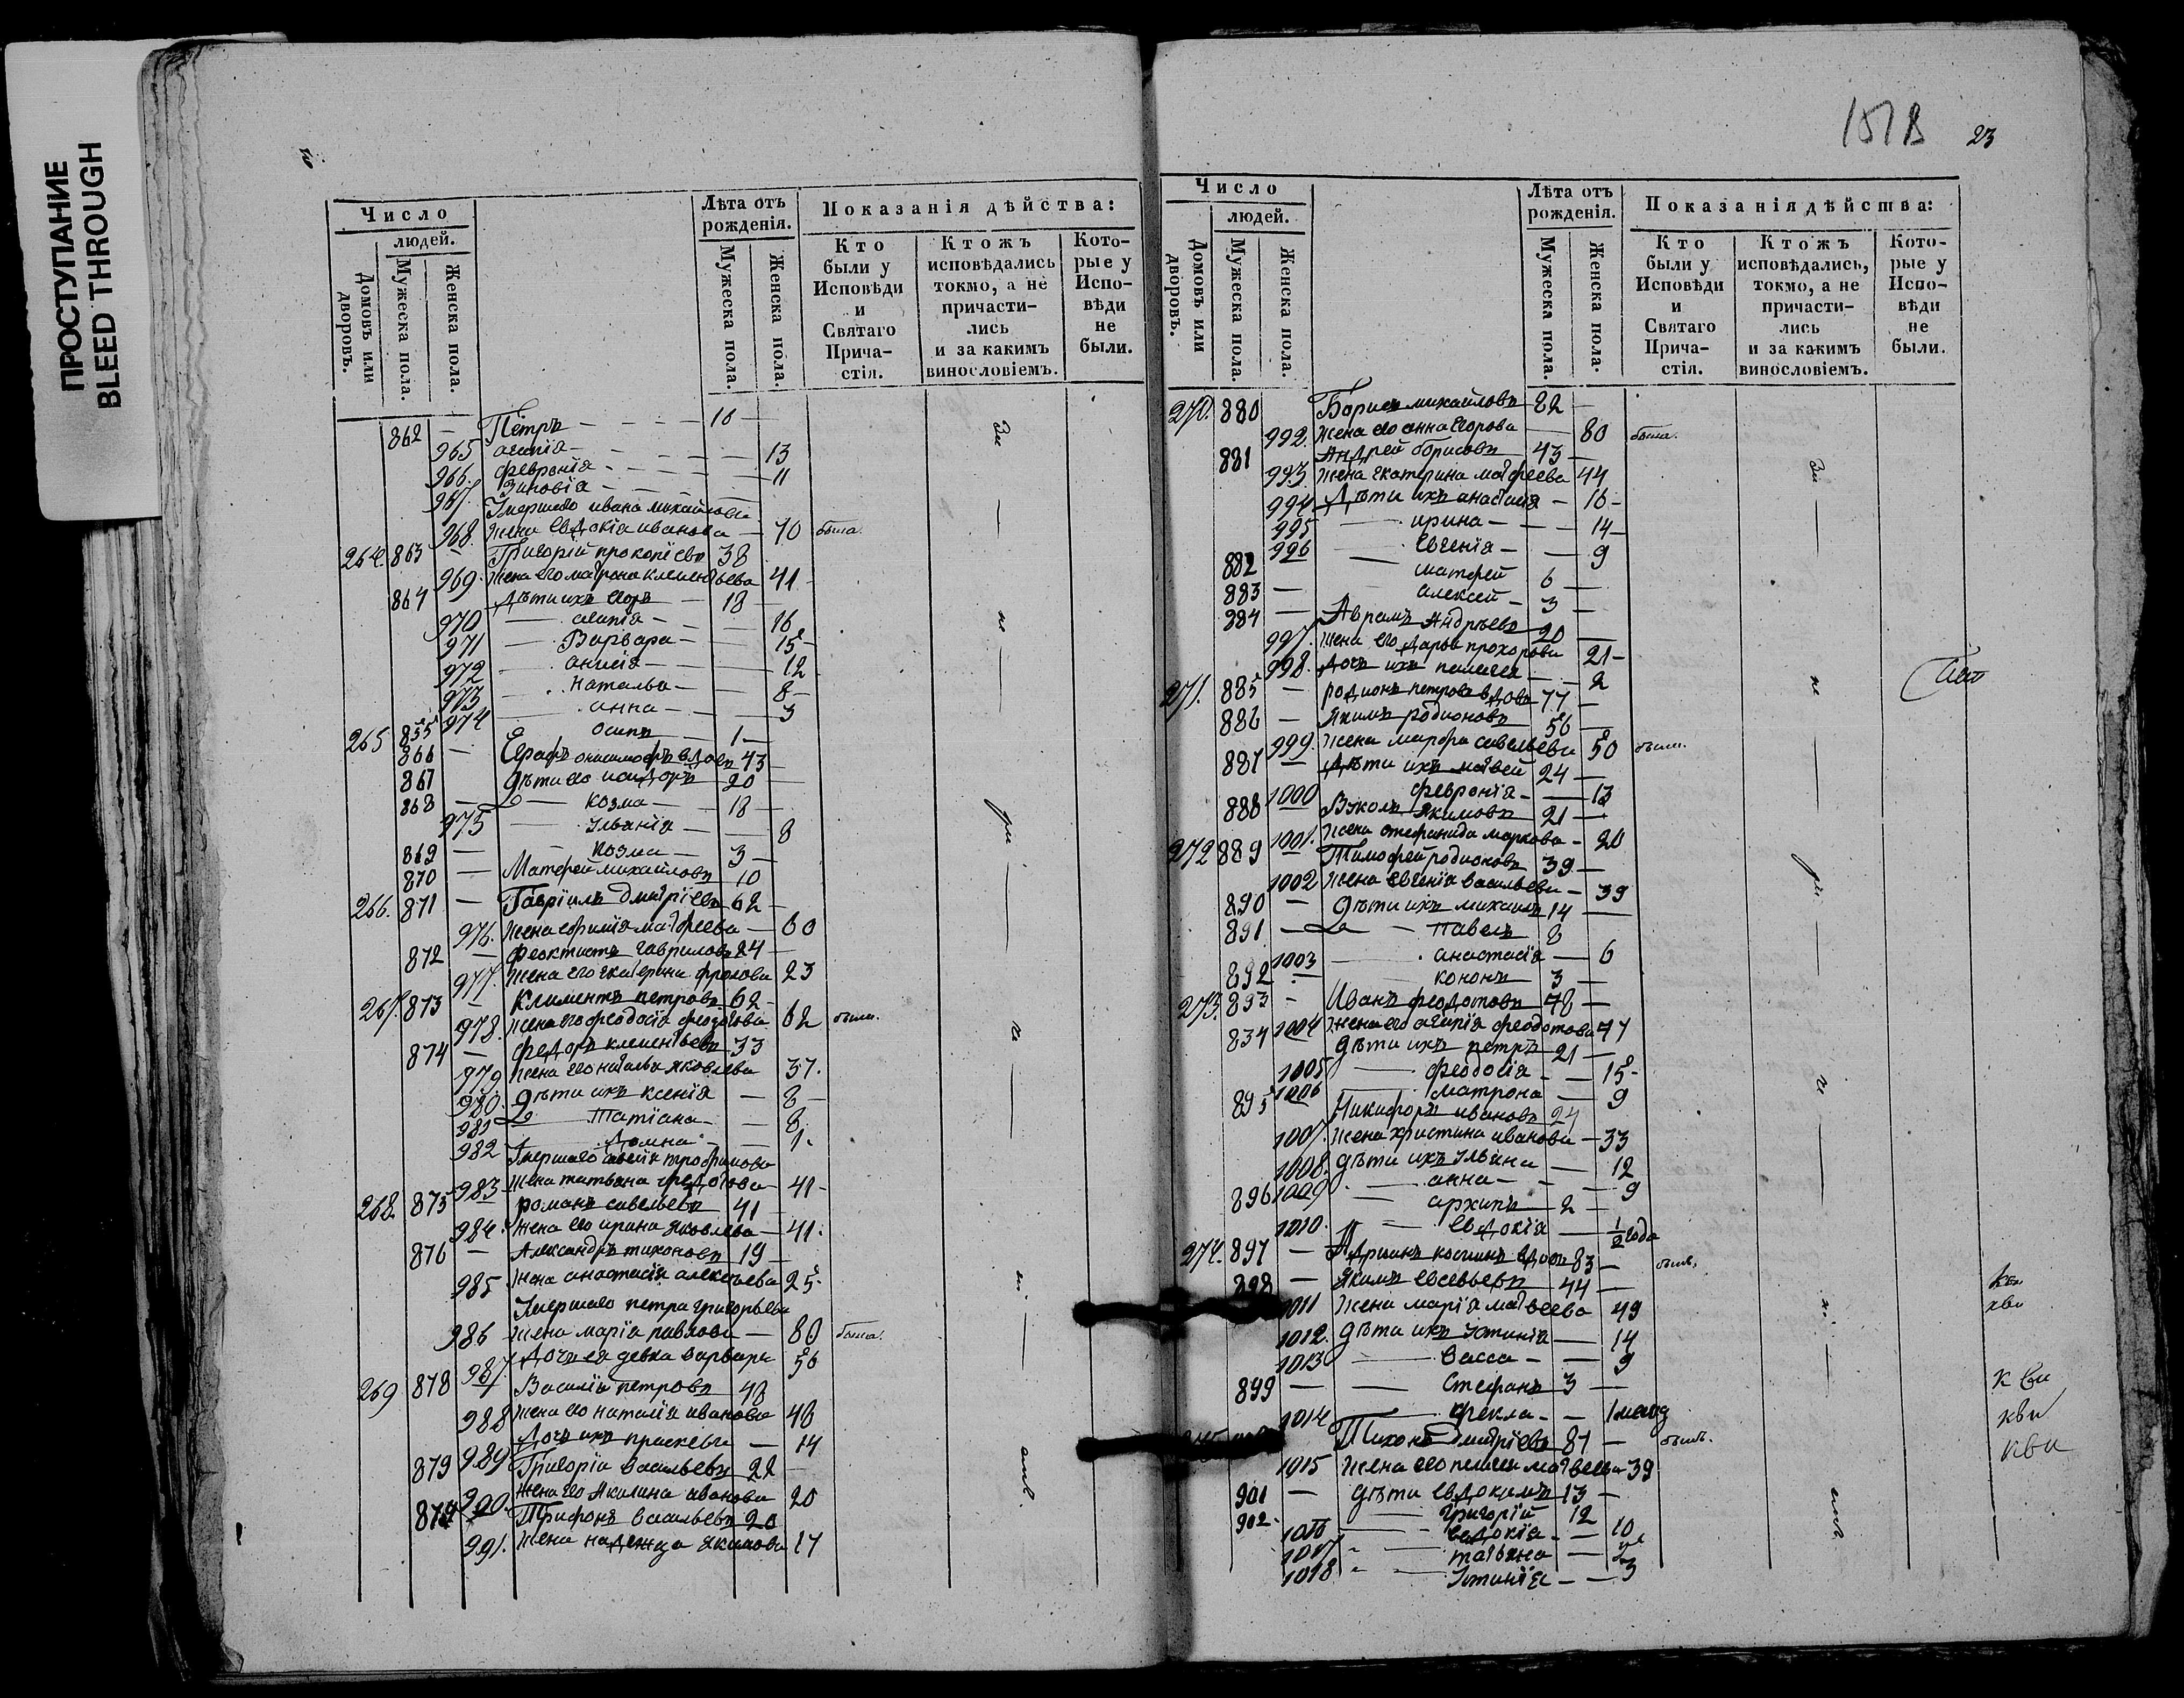 ПРОСТУПАНИЕ
BLEED THROUGH
Число
людей.
Домовъ или дворовъ.
Мужеска пола.
Женска пола.
Лѣта отъ рожденія.
Мужеска пола.
Женска пола.
Показанія дѣйства:
Кто были у Исповѣди и Святаго Прича-стія.
Ктожъ исповѣдались токмо, а не причасти-лись и за какимъ винословіемъ.
Кото-рые у Испо-вѣди не были.
862 — Петръ — 16 —
965 агапія — 13
966. феврониія — 11
967. Зиновія —
Умершаго ивана михайлова
968. жена евдокія иванова — 70 была.
264. 863 — Григорій прокопіевъ 38
969. жена его матрона клементьева 41
864 дѣти ихъ егоръ — 18 —
970 — агапія — 16
971 — Варвара — 15
972 — анисія — 12
973 — Наталья — 8
974 — анна — 3
855 осипъ — 1 —
265 866 — Еграфъ вдовъ 43 —
867 дѣти его исидоръ 20
868 — козма — 18 —
975 — Ульянія — 8
869 — козма — 3 —
870 — Матфей михайловъ 10
266. 871 — Гавріилъ дмитріевъ 62 —
976. жена ефимія матфеева — 60
872 — феоктистъ гавриловъ 24 —
977. жена его екатерина фролова 23
267. 873 — Климентъ петровъ 62 —
978. жена его феодосія 62 были.
874 — федоръ клементьевъ 33
979 жена его наталья яковлева 37.
980. дѣти ихъ ксенія — 8 —
981 — Татіана — 8
982 — Домна — 1.
Умершаго трофимова
983 — жена татьяна федотова 41 —
268. 875 романъ савельевъ 41 —
984. жена его ирина яковлева — 41.
876 — Александръ тихоновъ 19 —
985 жена анастасія алексѣева 25
Умершаго петра григорьева
986 жена марія павлова — 80 была.
987. дочь ея девка варвара 56
269 878 Василій петровъ 48
988 жена его наталія иванова 48
989 дочь ихъ праскевья — 14
879 Григорій васильевъ 22 —
990. жена его Акилина иванова 20
879 Трифонъ васильевъ 20
991. жена надежда якимова 17
157 В 23
Число
людей.
Домовъ или дворовъ.
Мужеска пола.
Женска пола.
Лѣта отъ рожденія.
Мужеска пола.
Женска пола.
Показанія дѣйства:
Кто были у Исповѣди и Святаго Прича-стія.
Ктожъ исповѣдались, токмо, а не причасти-лись и за какимъ винословіемъ.
Кото-рые у Испо-вѣди не были.
270. 880 Борисъ михайловъ 82 —
992. жена его анна егорова 80 была.
881 Андрей борисовъ 43 —
993. жена екатерина матфеева 44
994. дѣти ихъ анастасія — 16 —
995 — ирина — 14 —
996 — евгенія — 9
882 матфей 6 —
883 — алексей — 3 —
884 — Аврамъ Андреевъ 20 —
997. жена его дарья прохорова 21 —
998. дочь ихъ пелагея — 2
271. 885 — родионъ петровъ вдовъ 77 —
886 — Якимъ родионовъ 56 —
999. жена марфа савельева 50 были.
887 дѣти ихъ матвей 24 —
1000 феврония — 13
888 Вуколъ якимовъ 21 —
1001. жена стефанида маркова — 20
272 889 Тимофей родионовъ 39 —
1002 жена евгенія васильева — 39
890 — дѣти ихъ михаилъ 14 —
891 — павелъ 8
1003 — анастасія — 6
892 — кононъ 3 —
273. 893 — Иванъ федотовъ 48 —
1004 жена его агапія феодотова 47
834 дѣти ихъ петръ 21 —
1005 — феодосія — 15
1006 — матрона — 9
895 Никифоръ ивановъ 24
1007. жена христина иванова — 33
1008. дѣти ихъ Ульяна — 12
1009 — анна — 9
896 — архипъ 2 —
1010. — евдокія — 1/2 года
274. 897 — Адрианъ вдовъ 83 — былъ.
898 — Якимъ евсевьевъ 44 —
1011 жена марія матвеева 49
1012. дѣти ихъ Устинія — 14
1013 — васса — 9
899 — Стефанъ 3 —
1014 — фекла — 1
Тихонъ дмитріевъ 81 — былъ.
1015 жена его пелагея матвеева 39
901 — дѣти евдокимъ 13 —
902 — григорій 12
1016 — евдокія — 10
1017 — татьяна —
1018 — Устинія — 3